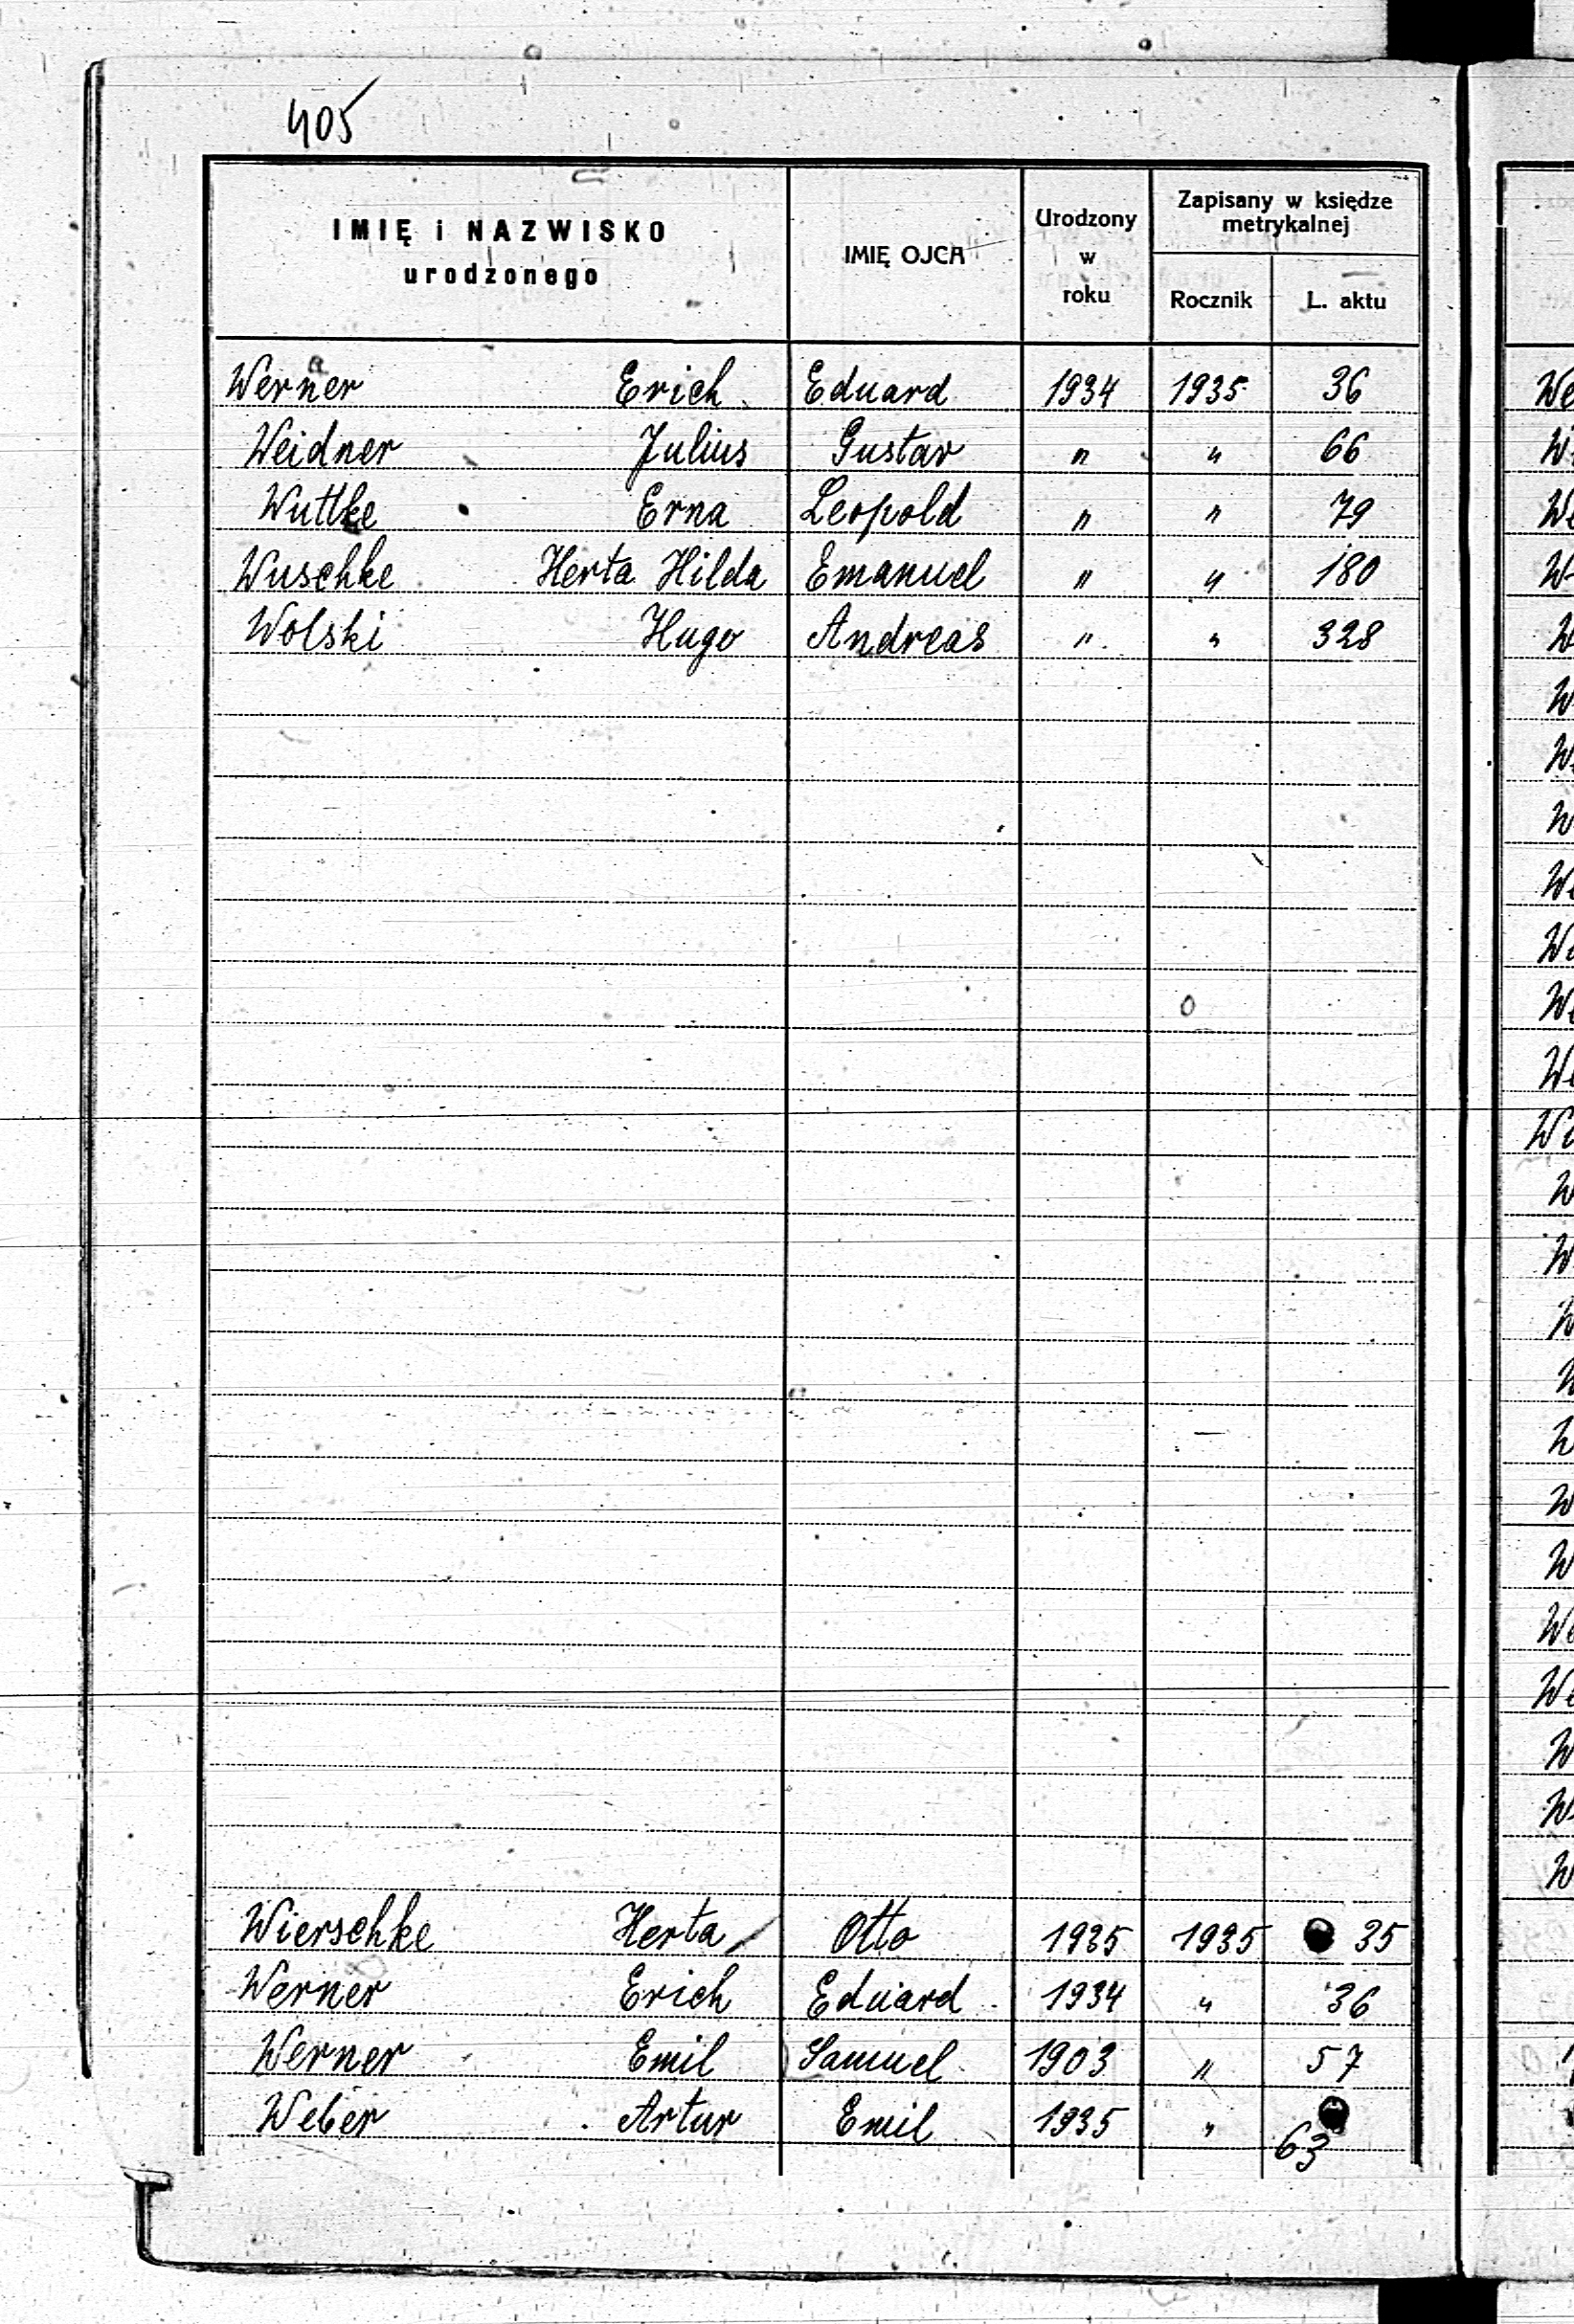 405
IMIĘ i NAZWISKO
urodzonego
IMIĘ OJCA
Urodzony
w
roku
Zapisany w księdze
metrykalnej
Rocznik
L. aktu
Werner Erich Eduard 1934 1935 36
Weidner Julius Gustav " " 66
Wuttke Erna Leopold " " 79
Wuschke Herta Hilda Emanuel " " 180
Wolski Hugo Andreas " " 328
Wierschke Herta Otto 1935 1935 35
Werner Erich Eduard 1934 " 36
Werner Emil Samuel 1903 " 57
Weber Artur Emil 1935 " 63